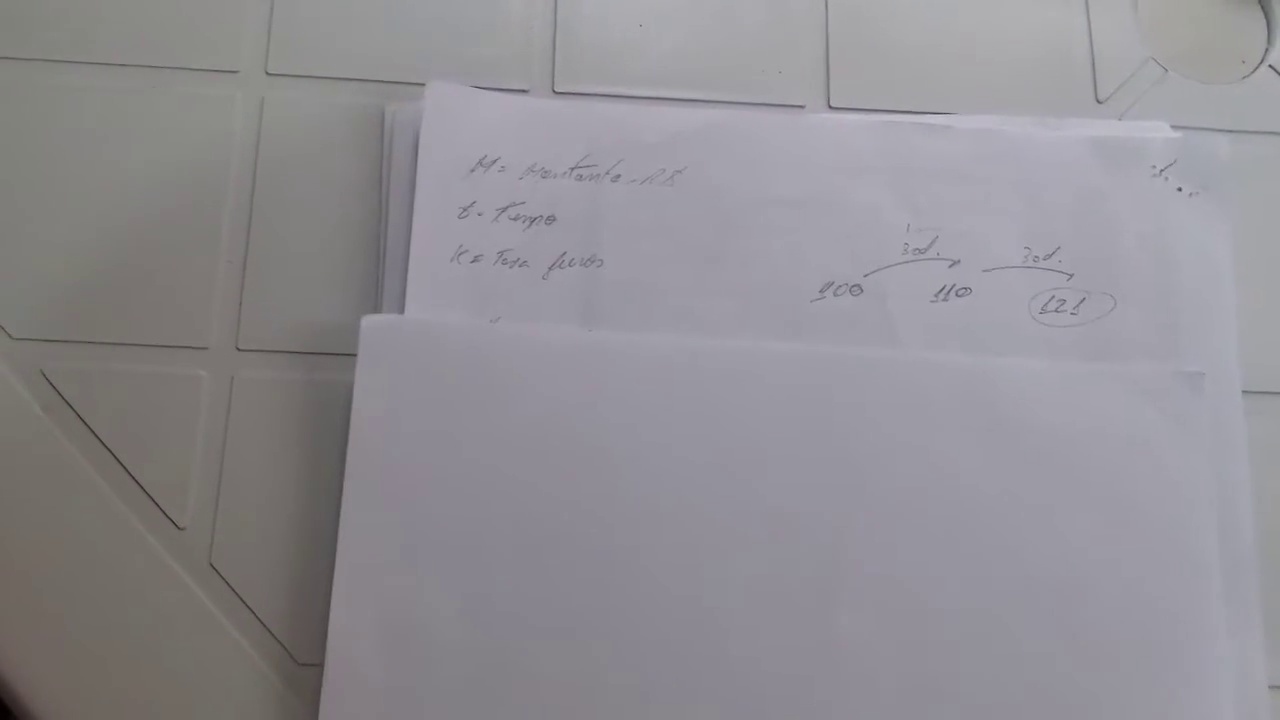 M = Montante - R$
t = Tempo
K = Taxa juros
30d. 30d.
100 110 121